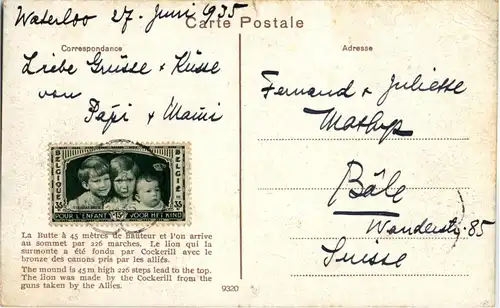 Waterloo 27. Juni 1935
Carte Postale
Correspondance
Liebe Grüsse + Küsse
von
Papi + Mami
BELGIQUE
BELGIË
35 35
POUR L'ENFANT VOOR HET KIND
La Butte à 45 mètres de hauteur et l'on arrive
au sommet par 226 marches. Le lion qui la
surmonte a été fondu par Cockerill avec le
bronze des canons pris par les alliés.
The mound is 45 m high 226 steps lead to the top.
The lion was made by the Cockerill from the
guns taken by the Allies.
9320
Adresse
Fernand + Juliette
Mathys
Bâle
Wanderstr. 85
Suisse